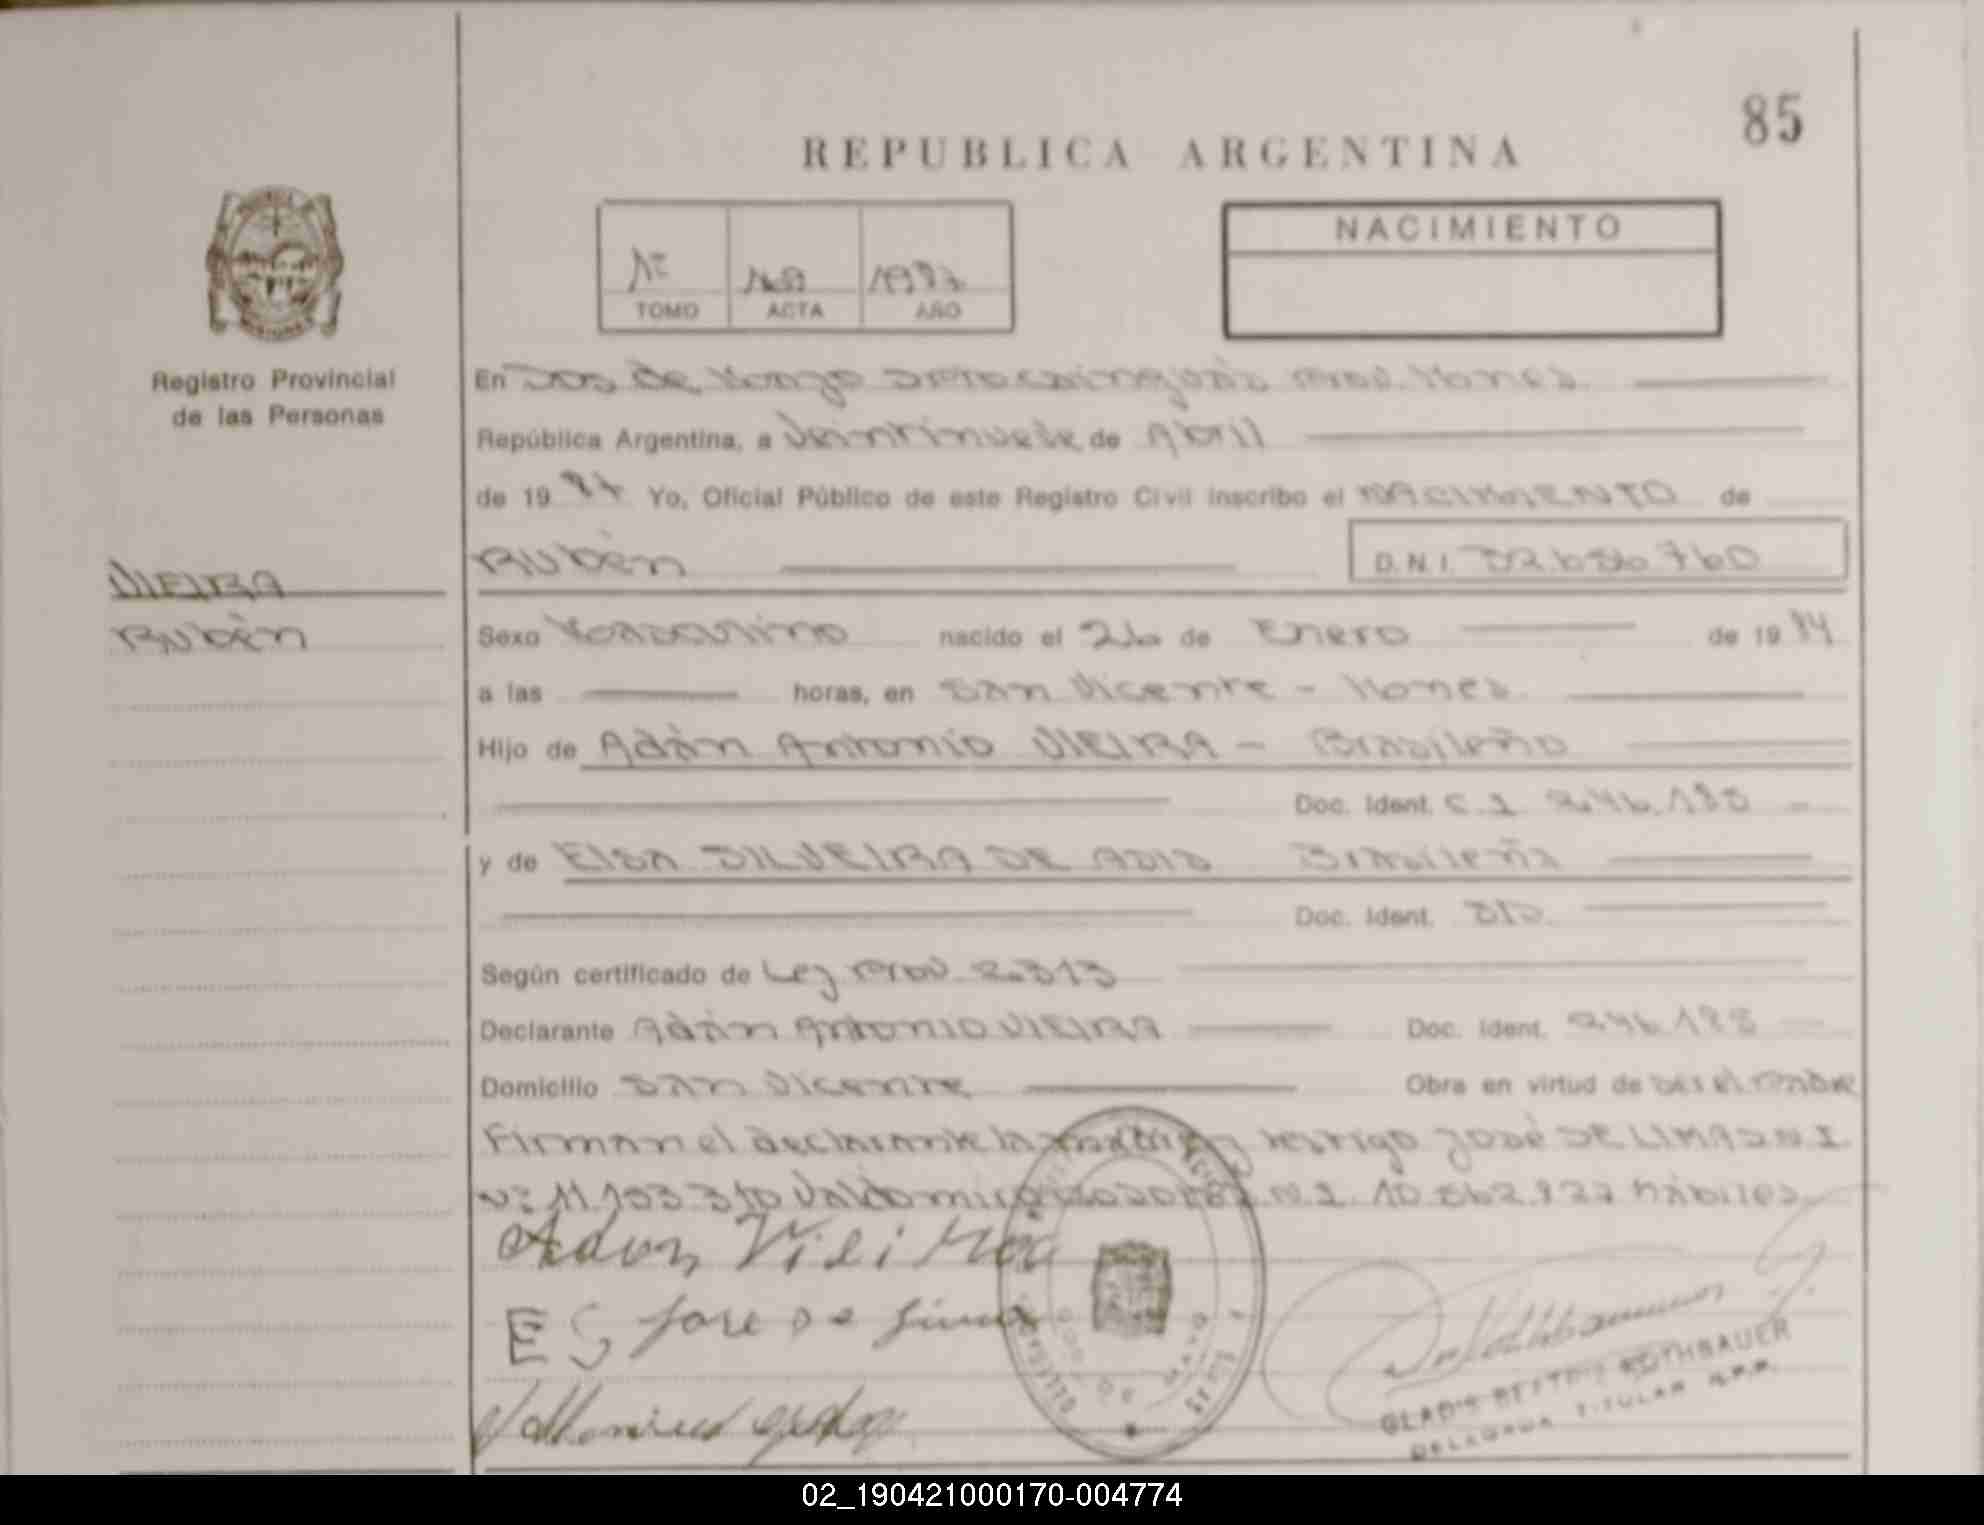 85
REPUBLICA ARGENTINA
NACIMIENTO
1º 1987
TOMO ACTA AÑO
Registro Provincial
de las Personas
En Dos de Mayo Prov. Mones.
República Argentina, a Veintinueve de Abril
de 19 87 Yo, Oficial Público de este Registro Civil inscribo el NACIMIENTO de
Rubén D.N.I.
VIEIRA
Rubén
Sexo Masculino nacido el 26 de Enero de 19 84
a las horas, en San Vicente - Mones.
Hijo de Adán Antonio VIEIRA - Brasileño
Doc. Ident. C.I
y de Elsa SILVEIRA DE Brasileña
Doc. Ident.
Según certificado de Ley Prov. 2.313
Declarante Adán Antonio VIEIRA Doc. Ident.
Domicilio San Vicente Obra en virtud de ser el Padre
Firman el declarante la y testigo José DE LIMA D.N.I.
Nº 11.103.310 hábiles
Adan
E S Jose De Lima
DOS DE MAYO
ROTHBAUER
DELEGADA TITULAR R.P.P.
02_190421000170-004774